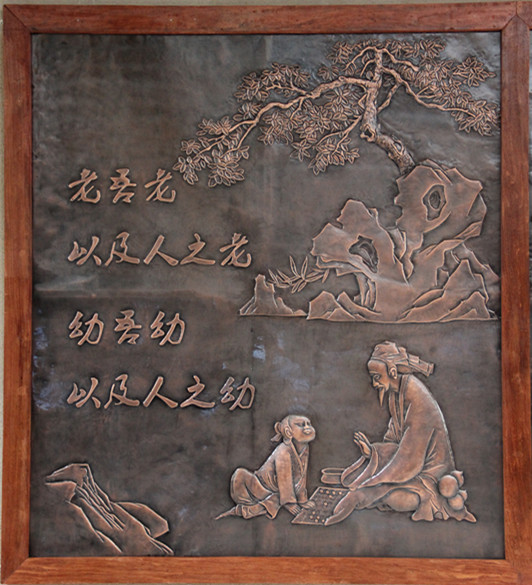 老吾老
以及人之老
幼吾幼
以及人之幼